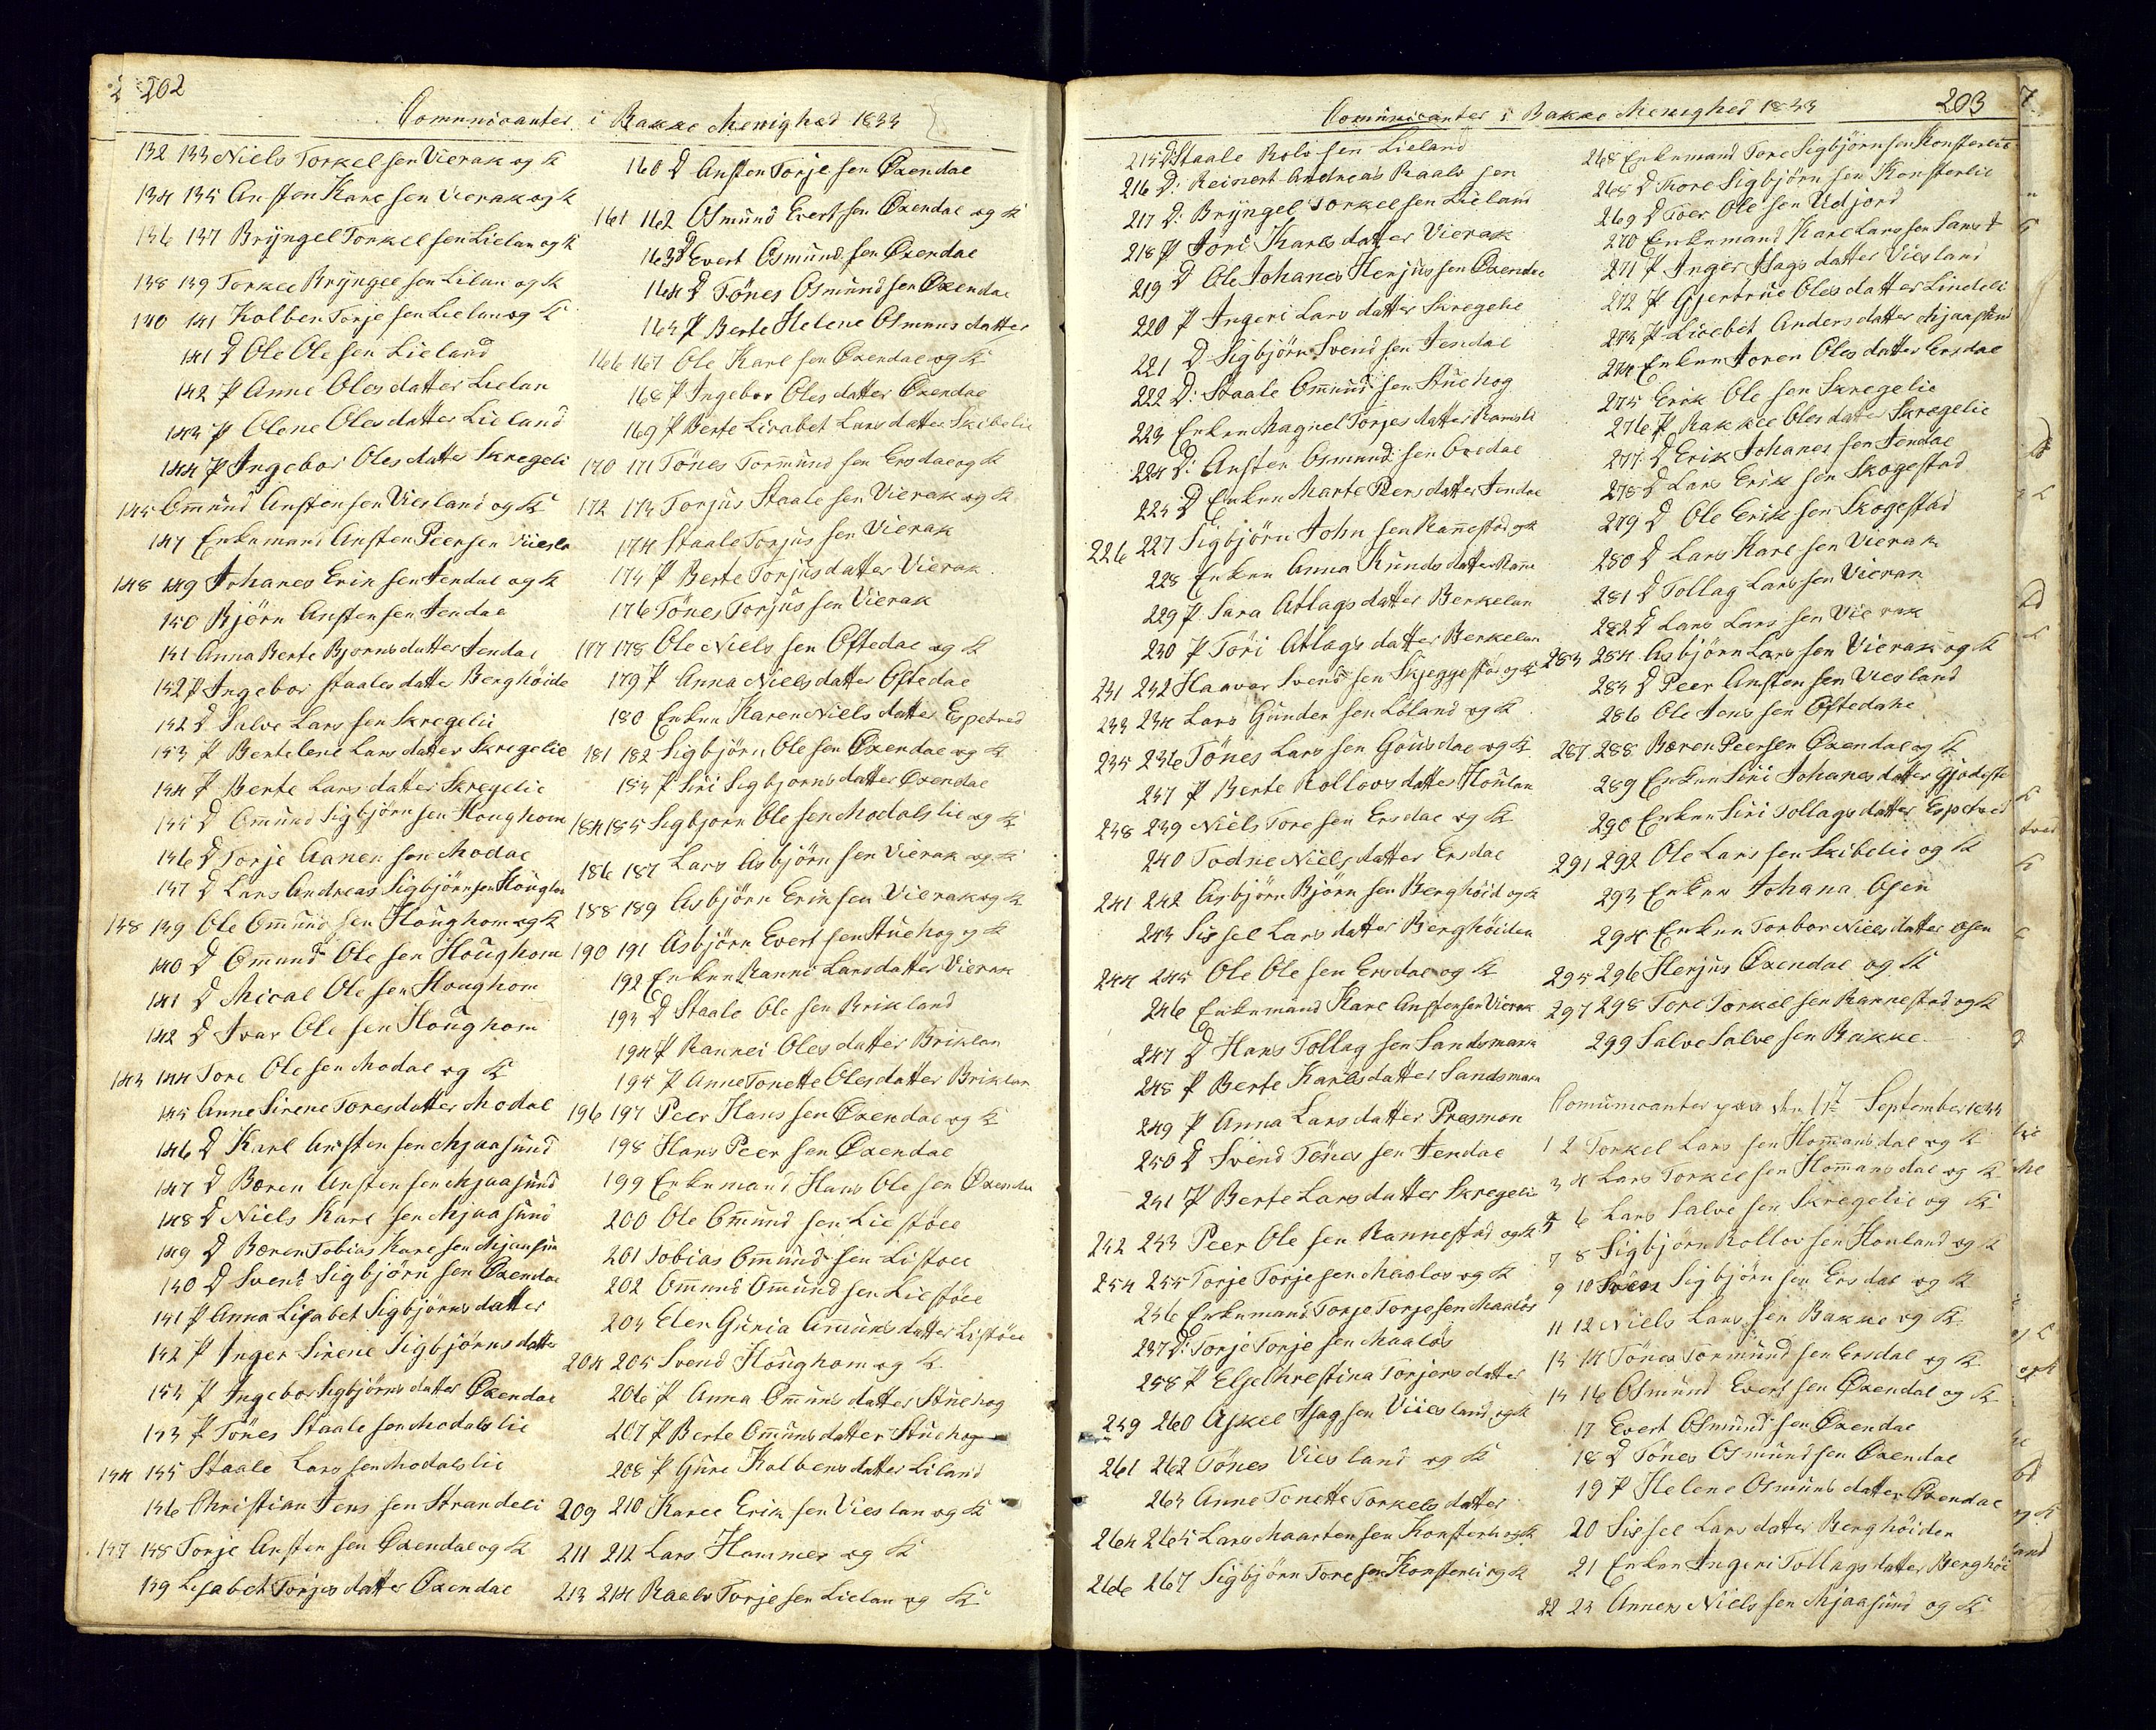 202
Communicanter i Bakke Menighed 1833
132 133 Niels Torkel sen Vierak og K
134 135 Ansten Karl sen Vierak og K
136 137 Bryngel Torkel sen Lielan og K
138 139 Torkel Bryngel sen Lilan og K
140 141 Kolben Torje sen Lielan og K
141 D Ole Ole sen Lieland
142 P Anne Oles datter Lielan
143 P Olene Oles datter Lieland
144 P Ingebor Oles datter Skregeli
145 Omund Ansten sen Viesland og K
147 Enkemand Ansten Peersen
148 149 Johanes Erik sen Jendal og K
150 Bjørn Ansten sen Jendal
151 Anna Berte Bjorns datter Jendal
152 P Ingebor Staales datter Berghöide
152 D Salve Lars sen Skregelie
153 P Bertelene Lars datter Skregelie
154 P Berte Lars datter Skregelie
155 D Omund Sigbjörn sen Houghom
156 D Torje Aanen sen Modal
157 D Lars Andreas Sigbjörn sen
138 139 Ole Omund sen Houghom og K
140 D Omund Ole sen Houghom
141 D Mical Ole sen Houghom
142 D Ivar Ole sen Houghom
143 144 Tore Ole sen Modal og K
145 Anne Sirene Tores datter Modal
146 D Karl Ansten sen Mjaasund
147 D Bæren Ansten sen Mjaasund
148 D Niels Karl sen Mjaasund
149 D Bæren Tobias Karl sen Mjaasun
150 D Svend Sigbjörn sen Oxendal
151 P Anna Lisabet Sigbjörns datter
152 P Inger Sirene Sigbjörns datter
153 P Ingebor Sigbjörns datter Oxendal
153 P Tönes Staale sen Modalslie
154 155 Staale Lars sen Modalslie
156 Christian Jens sen Strandeli
157 158 Torje Ansten sen Oxendal og K
159 Lisabet Torjes datter Oxendal
160 D Ansten Torje sen Oxendal
161 162 Osmund Evert sen Oxendal og K
163 D Evert Osmund sen Oxendal
164 D Tönes Osmund sen Oxendal
165 P Berte Helene Osmuns datter
166 167 Ole Karl sen Oxendal og K
168 P Ingebor Oles datter Oxendal
169 P Berte Lisabet Lars datter Skibelie
170 171 Tönes Tormund sen Ersdal og K
172 173 Torjus Staale sen Vierak og K
174 Staale Torjus sen Vierak
175 P Berte Torjus datter Vierak
176 Tönes Torjus sen Vierak
177 178 Ole Niels sen Oftedal og K
179 P Anna Niels datter Oftedal
180 Enken Karen Niels datter Espetved
181 182 Sigbjörn Ole sen Oxendal og K
183 P Siri Sigbjorns datter Oxendal
184 185 Sigbjorn Ole sen Modalslie og K
186 187 Lars Asbjörn sen Vierak og K
188 189 Asbjörn Erik sen Vierak og K
190 191 Asbjörn Evert sen Stuehog og K
192 Enken Ranni Lars datter Vierak
193 D Staale Ole sen Brikland
194 P Rannei Oles datter Briklan
195 P Anne Tonette Oles datter Briklan
196 197 Peer Hans sen Oxendal og K
198 Hans Peer sen Oxendal
199 Enkemand Hans Ole sen Oxendal
200 Ole Omund sen Lie støel
201 Tobias Omund sen Listoel
202 Omund Omund sen Lie støel
203 Elen Guria Omuns datter Listöel
204 205 Svend Houghom og K
206 P Anna Omuns datter Stuehog
207 P Berte Omuns datter Stuehog
208 P Gure Kolbens datter Liland
209 210 Karel Erik sen Vieslan og K
211 212 Lars Hammer og K
213 214 Raalv Torje sen Lielan og K
Comunicanter i Bakke Menighed 1833
203
215 D Staale Rolv sen Lieland
216 D: Reinert Andreas Raalv sen
217 D: Bryngel Torkel sen Lieland
218 P Joni Karls datter Vierak
219 D Ole Johanes Herjus sen Oxendal
220 P Ingeri Lars datter Skregelie
221 D Sigbjörn Svend sen Jendal
222 D: Staale Omund sen Stuehog
223 Enken Magnel Torjes datter Ramsli
224 D: Ansten Osmund sen Oxedal
225 D Enken Marte Peers datter Jendal
226 227 Sigbjörn John sen Rannestad og K
228 Enken Anna Knuds datter Rane
229 P Sara Atlags datter Berkelan
230 P Töri Atlags datter Berkelan
231 232 Haavar Svend sen Skjeggestad og K
233 234 Lars Gunder sen Löland og K
235 236 Tönes Lars sen Gousdal og K
237 P Berte Rollovs datter Houlan
238 239 Niels Tore sen Ersdal og K
240 Todne Niels datter Ersdal
241 242 Asbjörn Bjørn sen Berghöid og K
243 Sissel Lars datter Berghöiden
244 245 Ole Ole sen Ersdal og K
246 Enkemand Karl Ansten sen Vierak
247 D Hans Tollag sen Sandsmark
248 P Berte Karls datter Sandsmark
249 P Anna Lars datter Presmon
250 D Svend Tönes sen Jendal
251 P Berte Lars datter Skregelie
252 253 Peer Ole sen Rannestad og K
254 255 Torje Torje sen Maaløs og K
256 Enkemand Torje Torje sen Maaløs
257 D: Torje Torje sen Maaløs
258 P Else Chrestina Torjers datter
259 260 Askel Isag sen Viiesland og K
261 262 Tönes Viesland og K
263 Anne Tonette Torkels datter
264 265 Lars Maarten sen Konsterli og K
266 267 Sigbjörn Tore sen Konsteli og K
268 Enkemand Tore Sigbjörn sen Konsterlie
268 D Thore Sigbjörn sen Konsterlie
269 D Toer Ole sen Udjord
270 Enkemand Karl Lars sen
271 P Inger Isags datter Viesland
272 P Gjertrue Oles datter Lindeli
273 P Lisebet Anders datter Mjaasund
274 Enken Joren Oles datter Ersdal
275 Erik Ole sen Skregelie
276 P Rakkel Oles datter Skregelie
277 D Erik Johanes sen Jendal
278 D Lars Erik sen Skogestad
279 D Ole Erik sen Skogestad
280 D Lars Karl sen Vierak
281 D Tollag Lars sen Vierak
282 D Lars Lars sen Vierak
283 284 Asbjörn Lars sen Vierak og K
285 D Peer Ansten sen Viesland
286 Ole Jens sen Oftedahl
287 288 Bæren Peersen Oxendal og K
289 Enken Siri Johanes datter
290 Enken Siri Tollags datter Espetved
291 292 Ole Lars sen Skibelie og K
293 Enken Johana Osen
294 Enken Torbor Niels datter Osen
295 296 Herjus Oxendal og K
297 298 Tore Torkel sen Rannestad og K
299 Salve Salve sen Bakke
Comunicanter paa den September 1833
1 2 Torkel Lars sen Homansdal og K
3 4 Lars Torkel sen Homansdal og K
5 6 Lars Salve sen Skregelie og K
7 8 Sigbjörn Rollov sen Houland og K
9 10 Sven Sigbjörn sen Ersdal og K
11 12 Niels Lars sen Bakke og K
13 14 Tönes Tormund sen Ersdal og K
15 16 Osmund Evert sen Oxendal og K
17 Evert Osmund sen Oxendal
18 D Tönes Osmund sen Oxendal
19 P Helene Osmuns datter Oxendal
20 Sissel Lars datter Berghöiden
21 Enken Ingeri Tollags datter Berghöi
22 23 Annen Niels sen Mjaasund og K